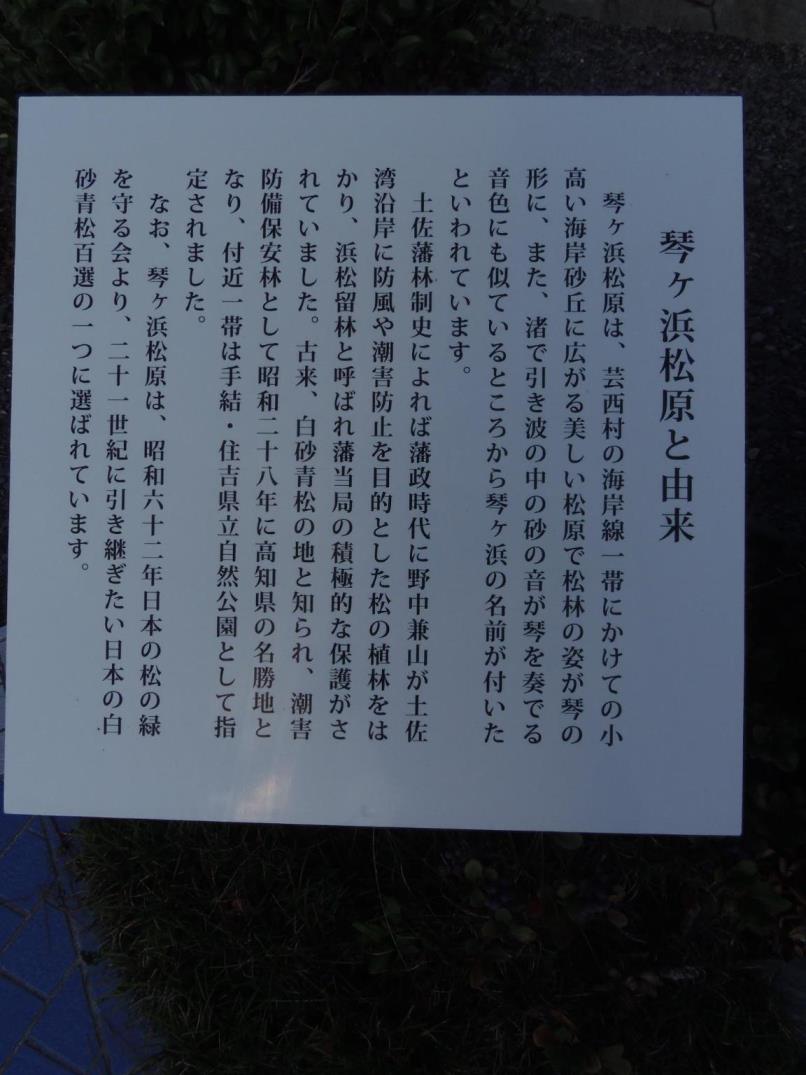 琴ヶ浜松原と由来
琴ヶ浜松原は、芸西村の海岸線一帯にかけての小
高い海岸砂丘に広がる美しい松原で松林の姿が琴の
形に、また、渚で引き波の中の砂の音が琴を奏でる
音色にも似ているところから琴ヶ浜の名前が付いた
といわれています。
土佐藩林制史によれば藩政時代に野中兼山が土佐
湾沿岸に防風や潮害防止を目的とした松の植林をは
かり、浜松留林と呼ばれ藩当局の積極的な保護がさ
れていました。古来、白砂青松の地と知られ、潮害
防備保安林として昭和二十八年に高知県の名勝地と
なり、付近一帯は手結・住吉県立自然公園として指
定されました。
なお、琴ヶ浜松原は、昭和六十二年日本の松の緑
を守る会より、二十一世紀に引き継ぎたい日本の白
砂青松百選の一つに選ばれています。